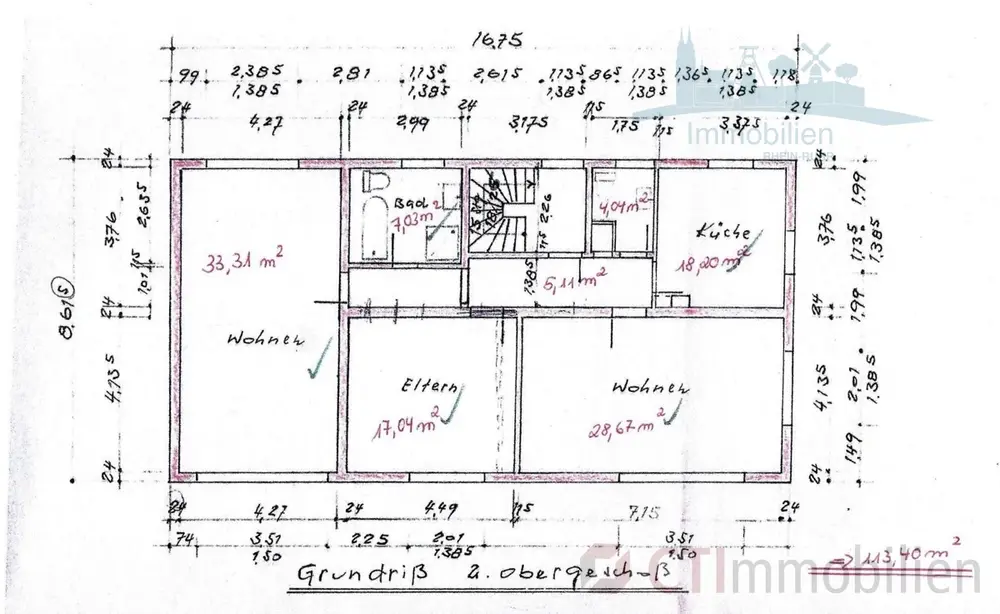 16,75
99 2,385 2,81 1,135 2,615 1,135 865 1,135 1,365 1,135 1,18
1,385 1,385 1,385 1,385 1,385
24 24 24 115 24
4,27 2,99 3,175 1,75 115 3,375
Immobilien
RHEIN-RUHR
8,615
24 3,76 24 4,135 24
2,655 115 1,01
Bad
7,03 m²
2,26
115
4,04 m²
Küche
18,20 m²
33,31 m²
1,385
5,11 m²
Wohnen
Eltern
17,04 m²
Wohnen
28,67 m²
24 3,76 24 4,135 24
1,99 1,135 1,99 2,01 1,49
1,385 1,385
24 4,27 24 4,49 115 7,15 24
74 3,51 2,25 2,01 3,51
1,50 1,385 1,50
Grundriß 2. Obergeschoß
=> 113,40 m²
CTImmobilien